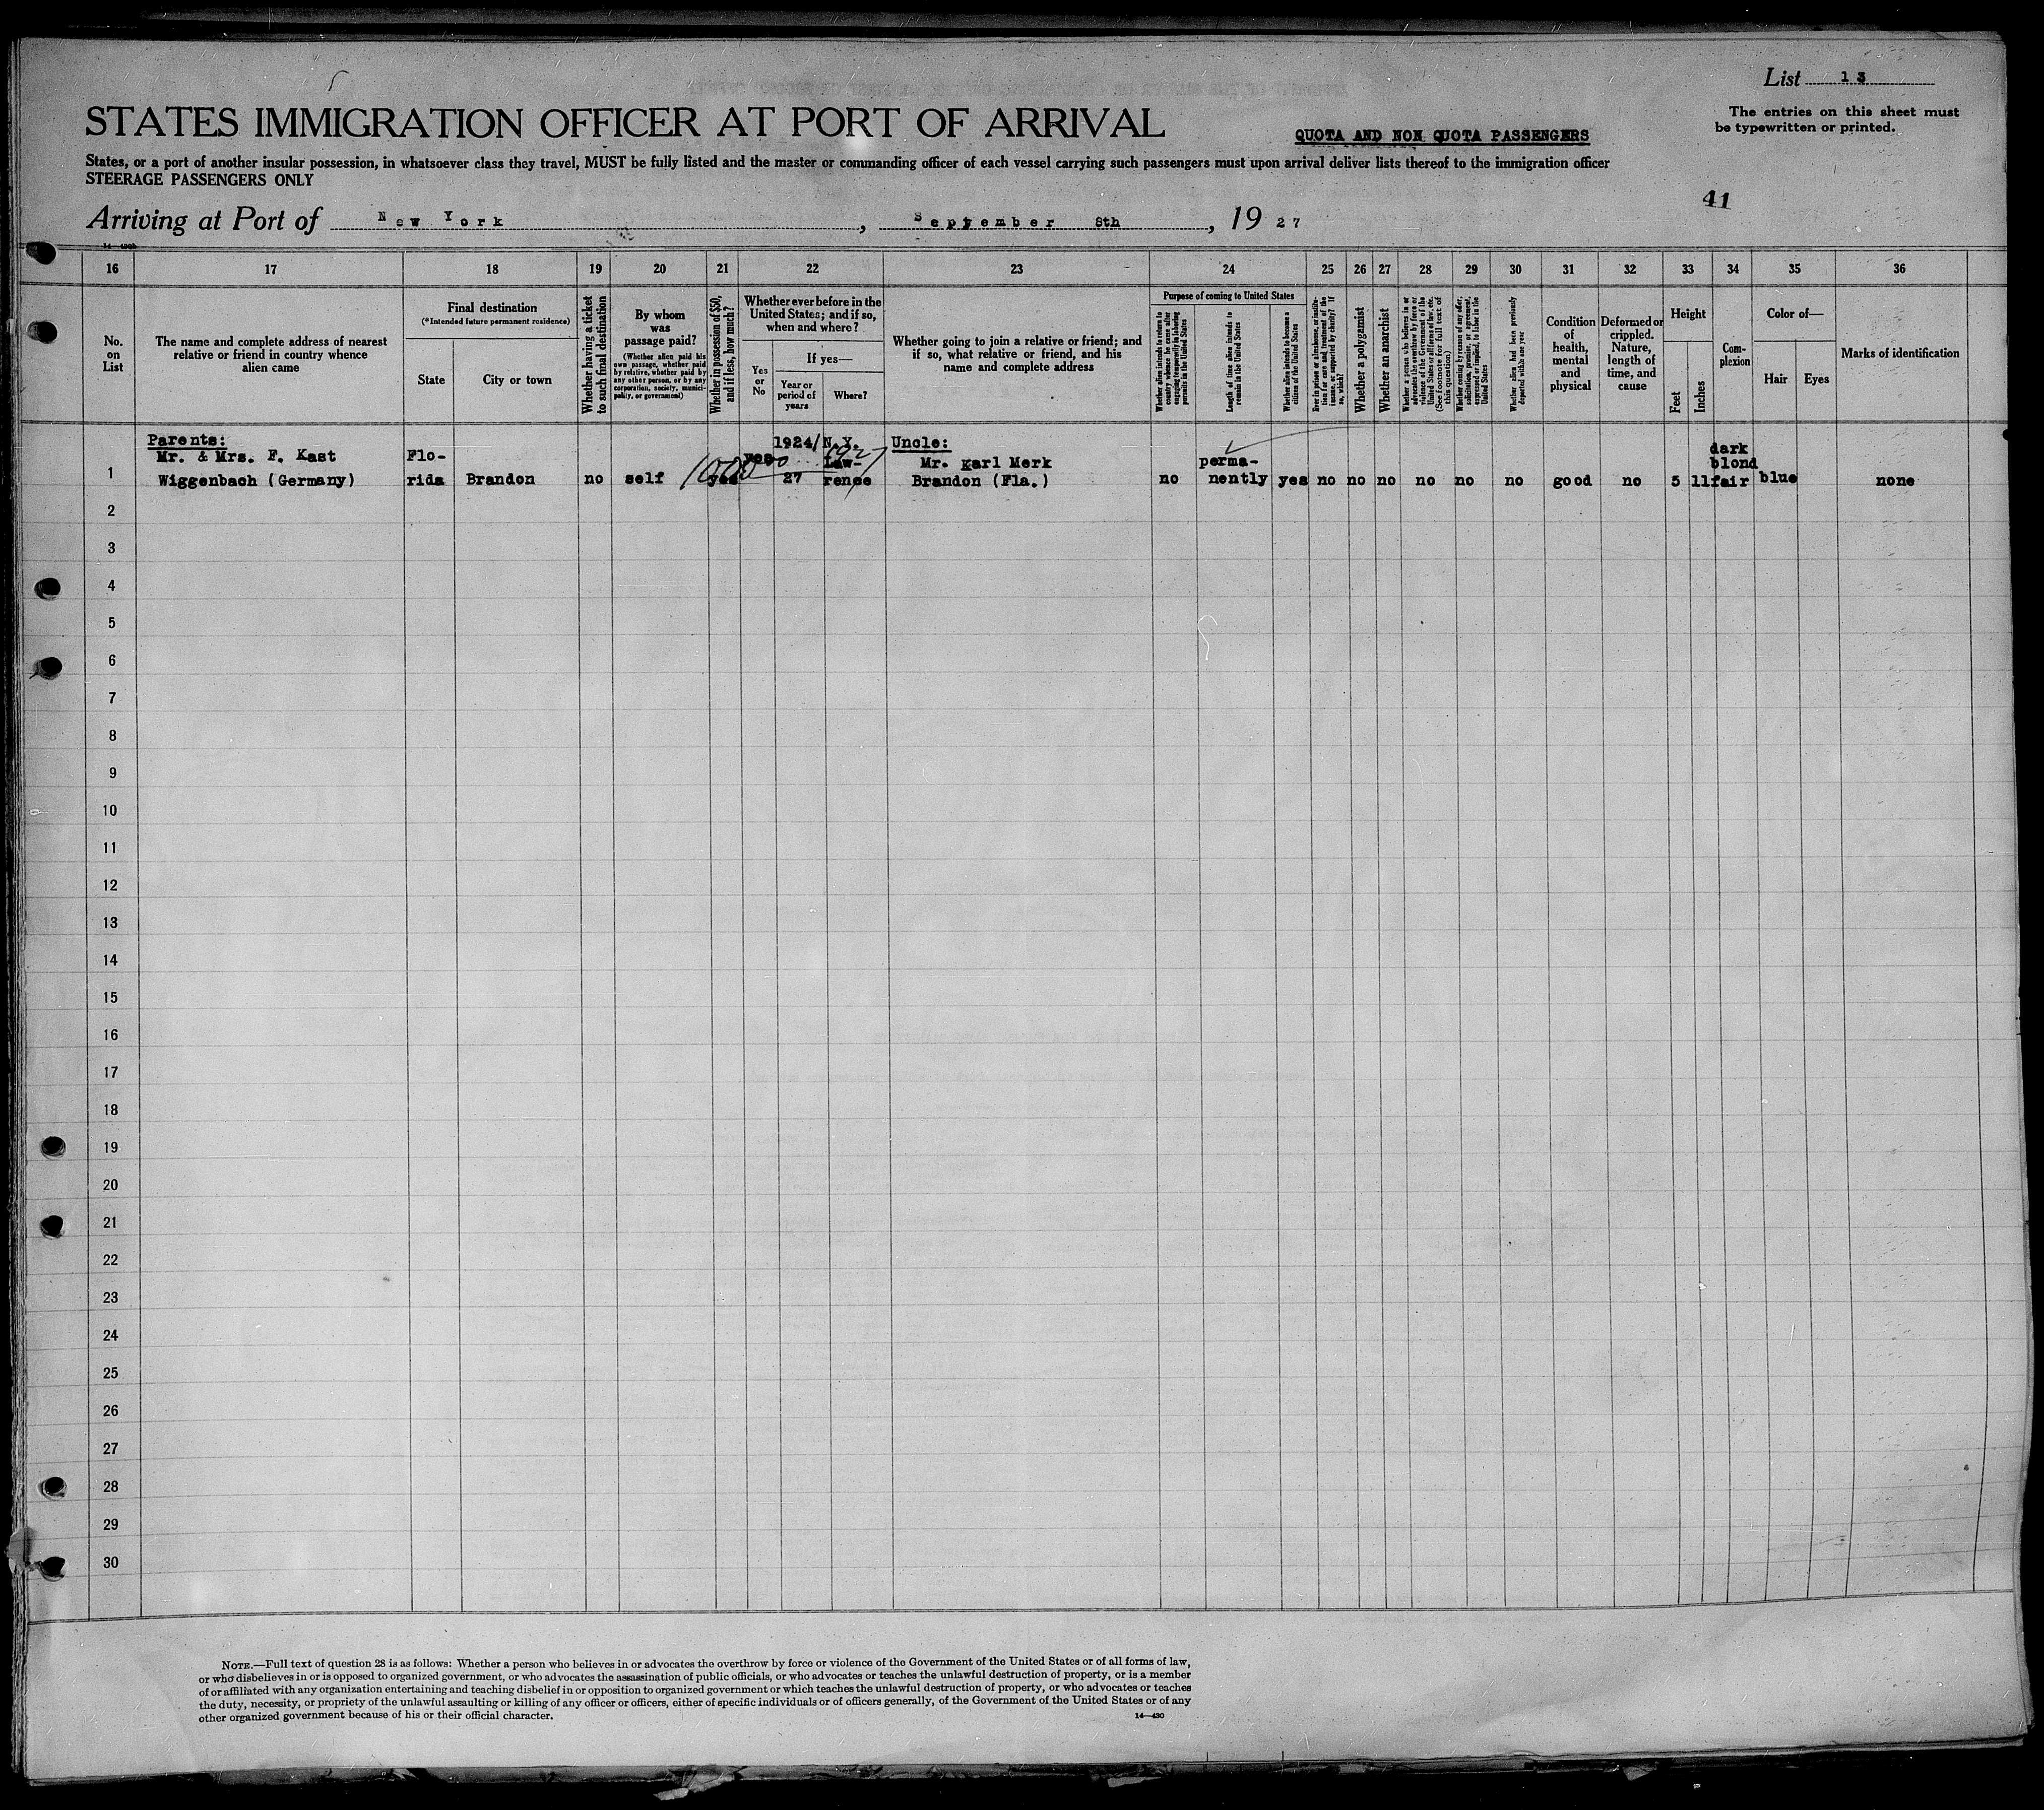 List 13
The entries on this sheet must
be typewritten or printed.
STATES IMMIGRATION OFFICER AT PORT OF ARRIVAL
QUOTA AND NON QUOTA PASSENGERS
States, or a port of another insular possession, in whatsoever class they travel, MUST be fully listed and the master or commanding officer of each vessel carrying such passengers must upon arrival deliver lists thereof to the immigration officer
STEERAGE PASSENGERS ONLY
41
Arriving at Port of New York, September 8th, 1927
16 17 18 19 20 21 22 23 24 25 26 27 28 29 30 31 32 33 34 35 36
No.
on
List
The name and complete address of nearest
relative or friend in country whence
alien came
Final destination
(*Intended future permanent residence)
State
City or town
Whether having a ticket
to such final destination
By whom
was
passage paid?
(Whether alien paid his
own passage, whether paid
by relative, whether paid by
any other person, or by any
corporation, society, munici-
pality, or government)
Whether in possession of $50,
and if less, how much?
Whether ever before in the
United States; and if so,
when and where?
Yes
or
No
If yes—
Year or
period of
years
Where?
Whether going to join a relative or friend; and
if so, what relative or friend, and his
name and complete address
Purpose of coming to United States
Whether alien intends to return to
country whence he came after
engaging temporarily in laboring
pursuits in the United States
Length of time alien intends to
remain in the United States
Whether alien intends to become a
citizen of the United States
Ever in prison or almshouse, or institu-
tion for care and treatment of the
insane, or supported by charity? If
so, which?
Whether a polygamist
Whether an anarchist
Whether a person who believes in or
advocates the overthrow by force or
violence of the Government of the
United States or all forms of law, etc.
(See footnote for full text of
this question)
Whether coming by reason of any offer,
solicitation, promise, or agreement,
expressed or implied, to labor in the
United States
Whether alien had been previously
deported within one year
Condition
of
health,
mental
and
physical
Deformed or
crippled.
Nature,
length of
time, and
cause
Height
Feet
Inches
Com-
plexion
Color of—
Hair
Eyes
Marks of identification
Parents: 1924/N.Y. Uncle: dark
Mr. & Mrs. F. Kast Flo- yes 1927 Law- Mr. Karl Merk perma- blond
1 Wiggenbach (Germany) rida Brandon no self yes 27 rence Brandon (Fla.) no nently yes no no no no no no good no 5 11 fair blue none
2
3
4
5
6
7
8
9
10
11
12
13
14
15
16
17
18
19
20
21
22
23
24
25
26
27
28
29
30
NOTE.—Full text of question 28 is as follows: Whether a person who believes in or advocates the overthrow by force or violence of the Government of the United States or of all forms of law,
or who disbelieves in or is opposed to organized government, or who advocates the assassination of public officials, or who advocates or teaches the unlawful destruction of property, or is a member
of or affiliated with any organization entertaining and teaching disbelief in or opposition to organized government or which teaches the unlawful destruction of property, or who advocates or teaches
the duty, necessity, or propriety of the unlawful assaulting or killing of any officer or officers, either of specific individuals or of officers generally, of the Government of the United States or of any
other organized government because of his or their official character.
14—430